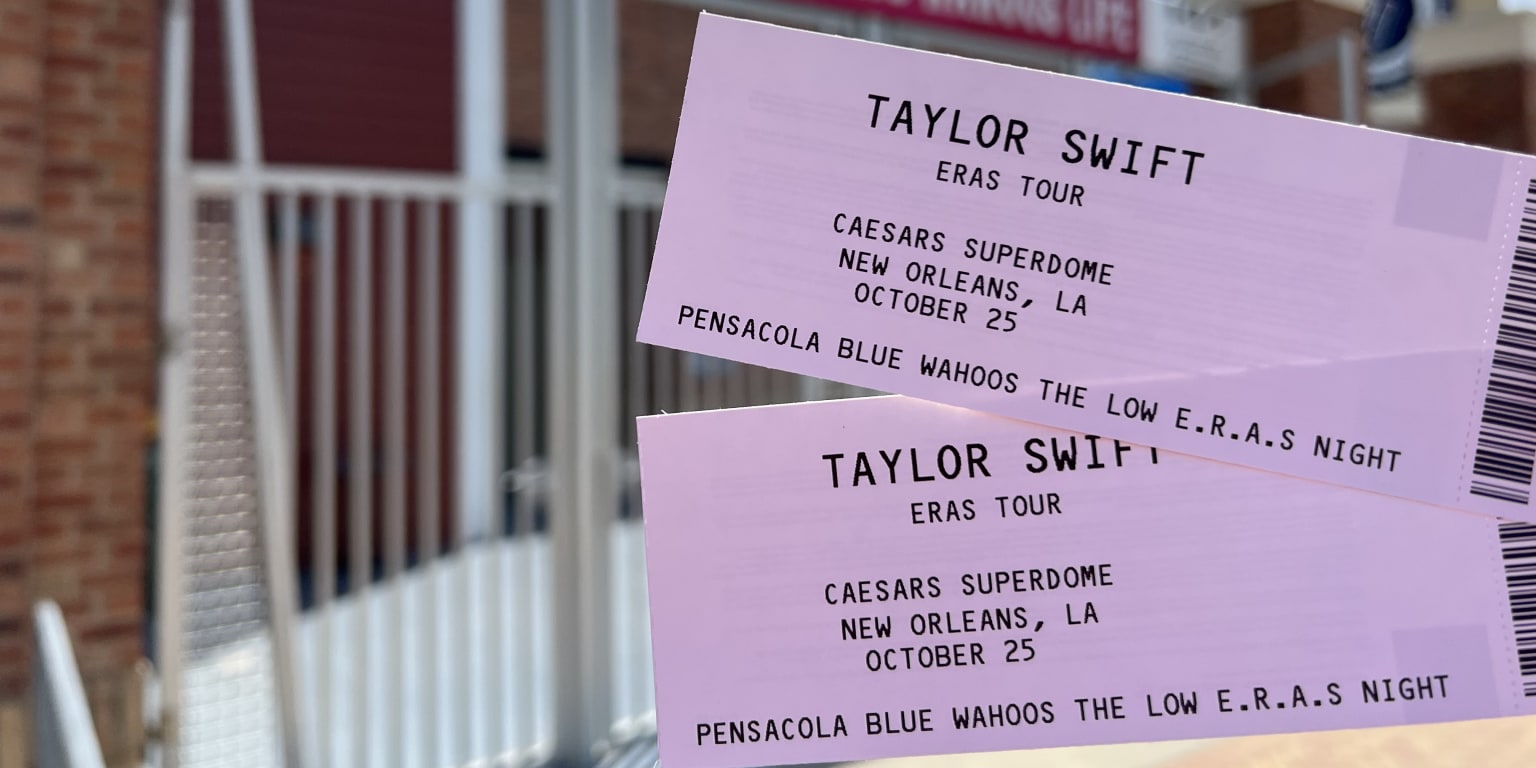 TAYLOR SWIFT
ERAS TOUR
CAESARS SUPERDOME
NEW ORLEANS, LA
OCTOBER 25
PENSACOLA BLUE WAHOOS THE LOW E.R.A.S NIGHT
TAYLOR SWIFT
ERAS TOUR
CAESARS SUPERDOME
NEW ORLEANS, LA
OCTOBER 25
PENSACOLA BLUE WAHOOS THE LOW E.R.A.S NIGHT